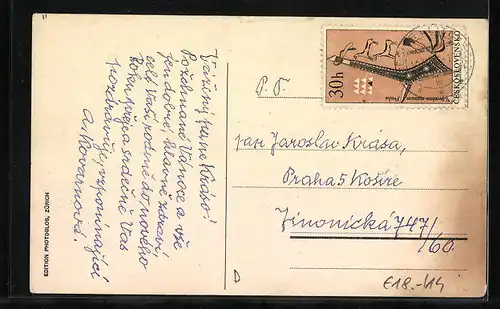 Vážený pane Kráso!
Požehnané Vánoce a vše
jen dobré, hlavně zdraví
celé Vaší rodině do nového
roku přeje a srdečně Vás
pozdravuje, vzpomínající
A. Kovarnová.
EDITION PHOTOGLOB, ZÜRICH
30h
ČESKOSLOVENSKO
P. T.
pan Jaroslav Krása,
Praha 5 Košíře
Jinonická 747/
/60
€18.-/14